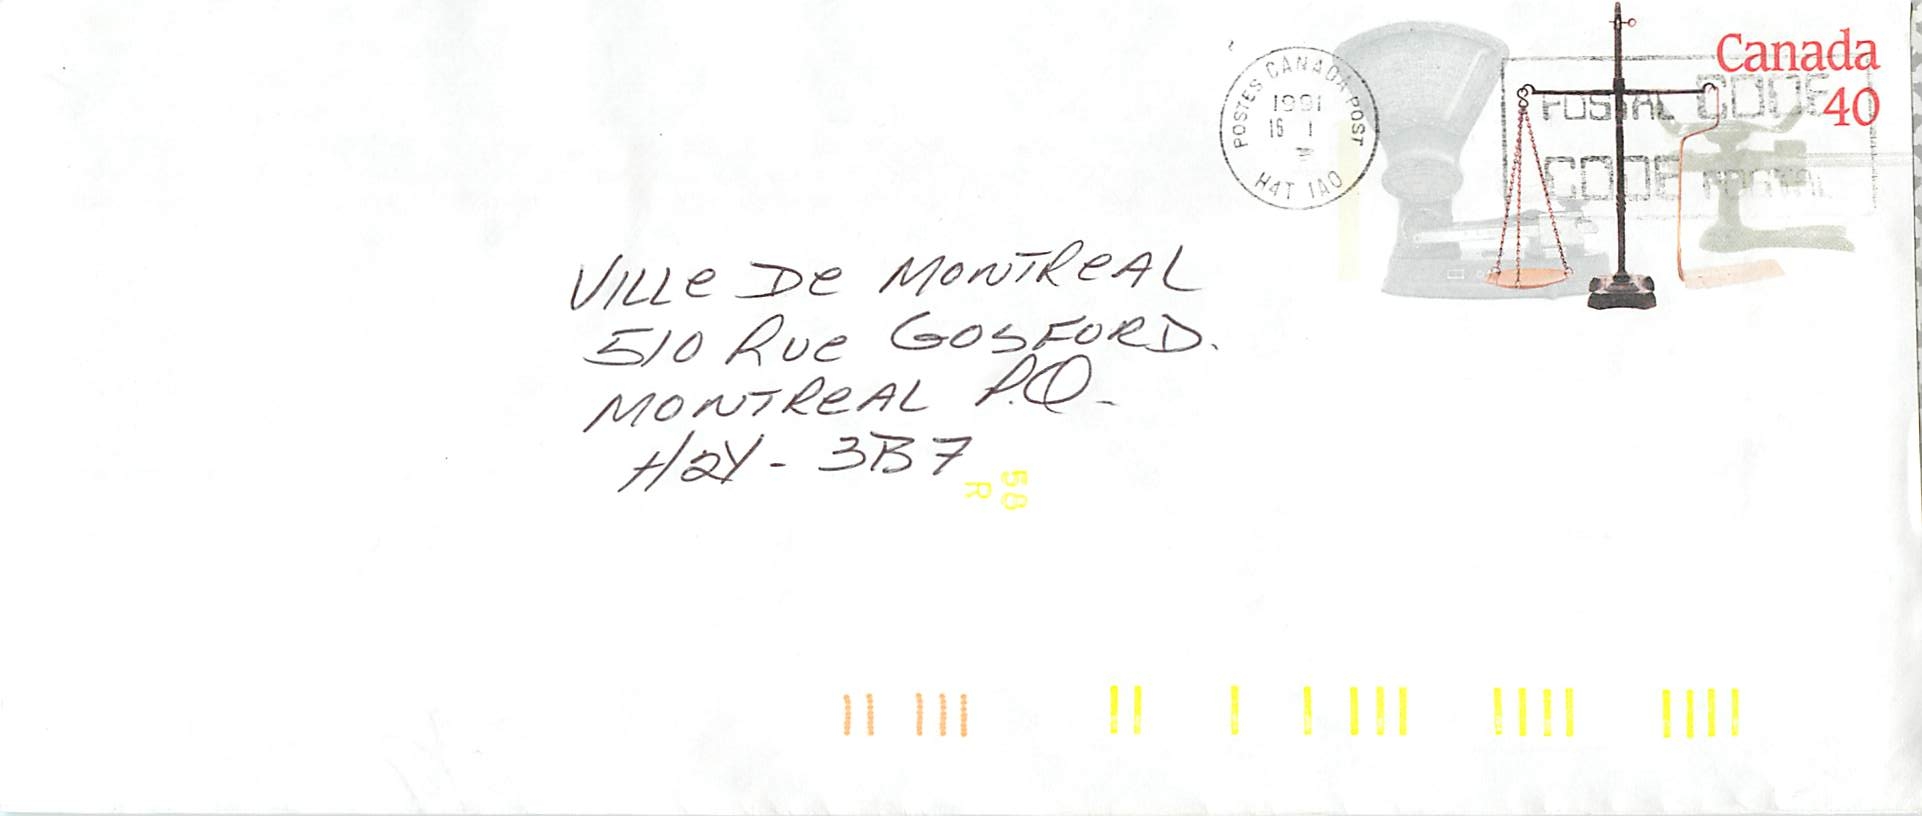 Canada
40
POSTES CANADA POST
1991
16 I
H4T 1A0
POSTAL CODE
CODE POSTAL
VILLe De MONTReAL
510 Rue GOSFORD.
MONTReAL P.Q.
H2Y - 3B7
58
R